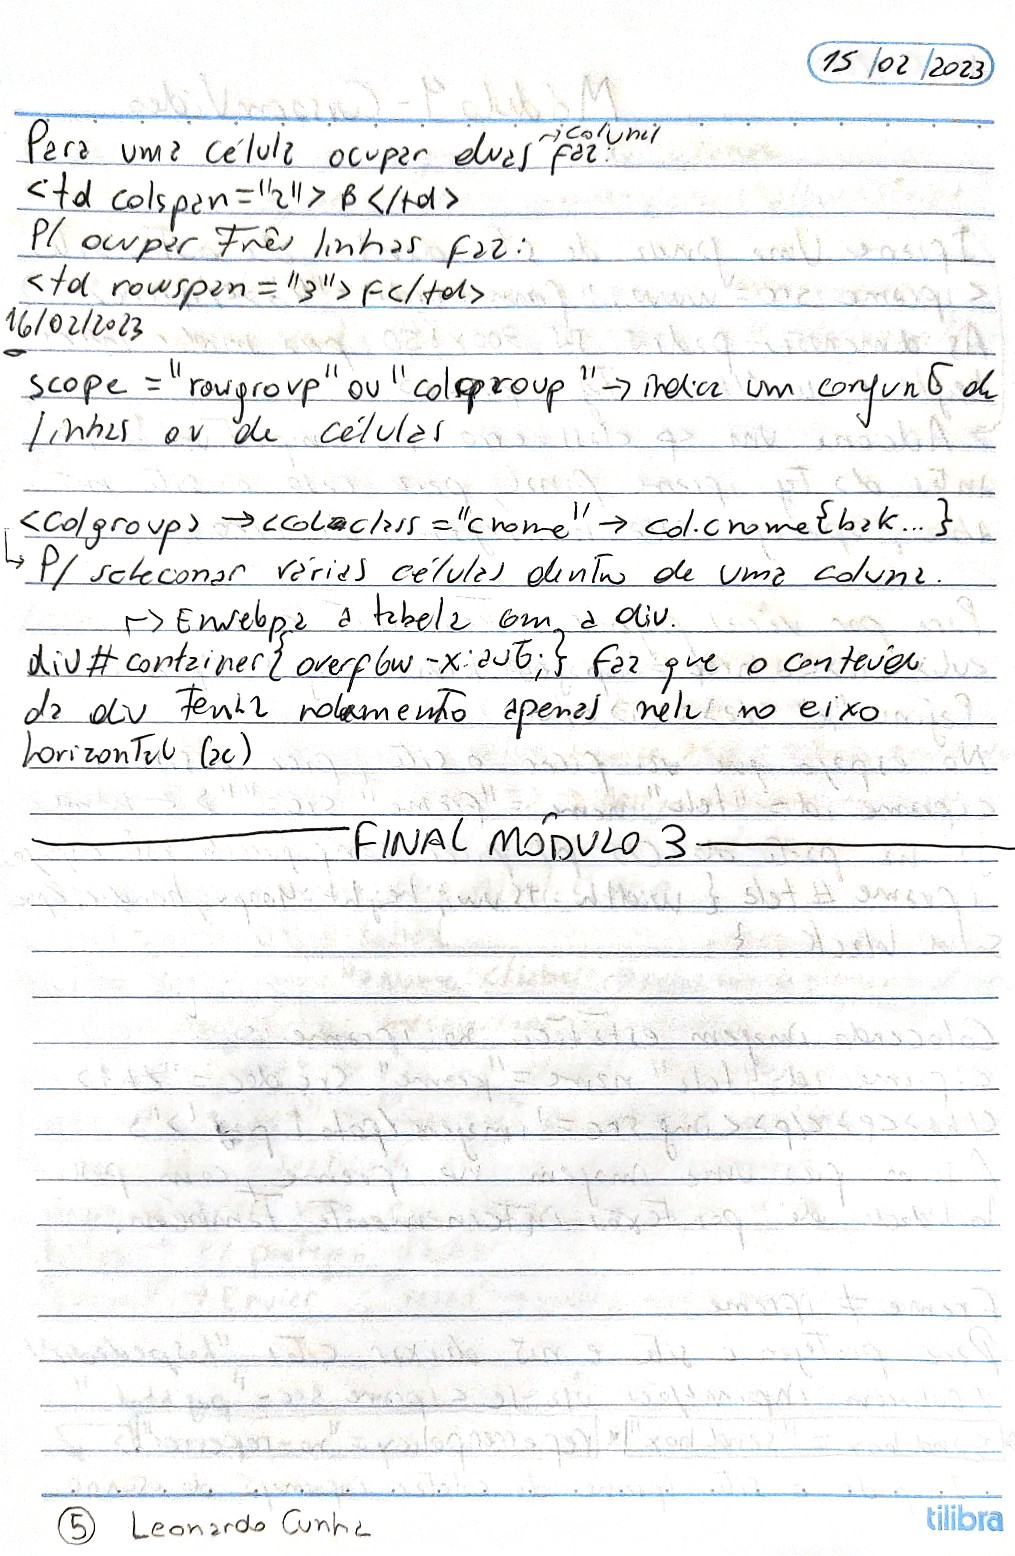 15/02/2023
Para uma célula ocupar duas colunas faz:
<td colspan="2"> B </td>
P/ ocupar Três linhas faz:
<td rowspan="3"> F </td>
16/02/2023
scope = "rowgroup" ou "colgroup" → indica um conjunto de
linhas ou de células
<colgroup> → <col class="cnome" → col.cnome{bak...}
↳ P/ seleconar várias células dentro de uma coluna.
↱ Envelopa a tabela com a div.
div#container{overflow-x:auto;} faz que o conteúdo
da div Tenha rolamento apenas nela no eixo
horizontal (x)
FINAL MÓDULO 3
5 Leonardo Cunha
tilibra